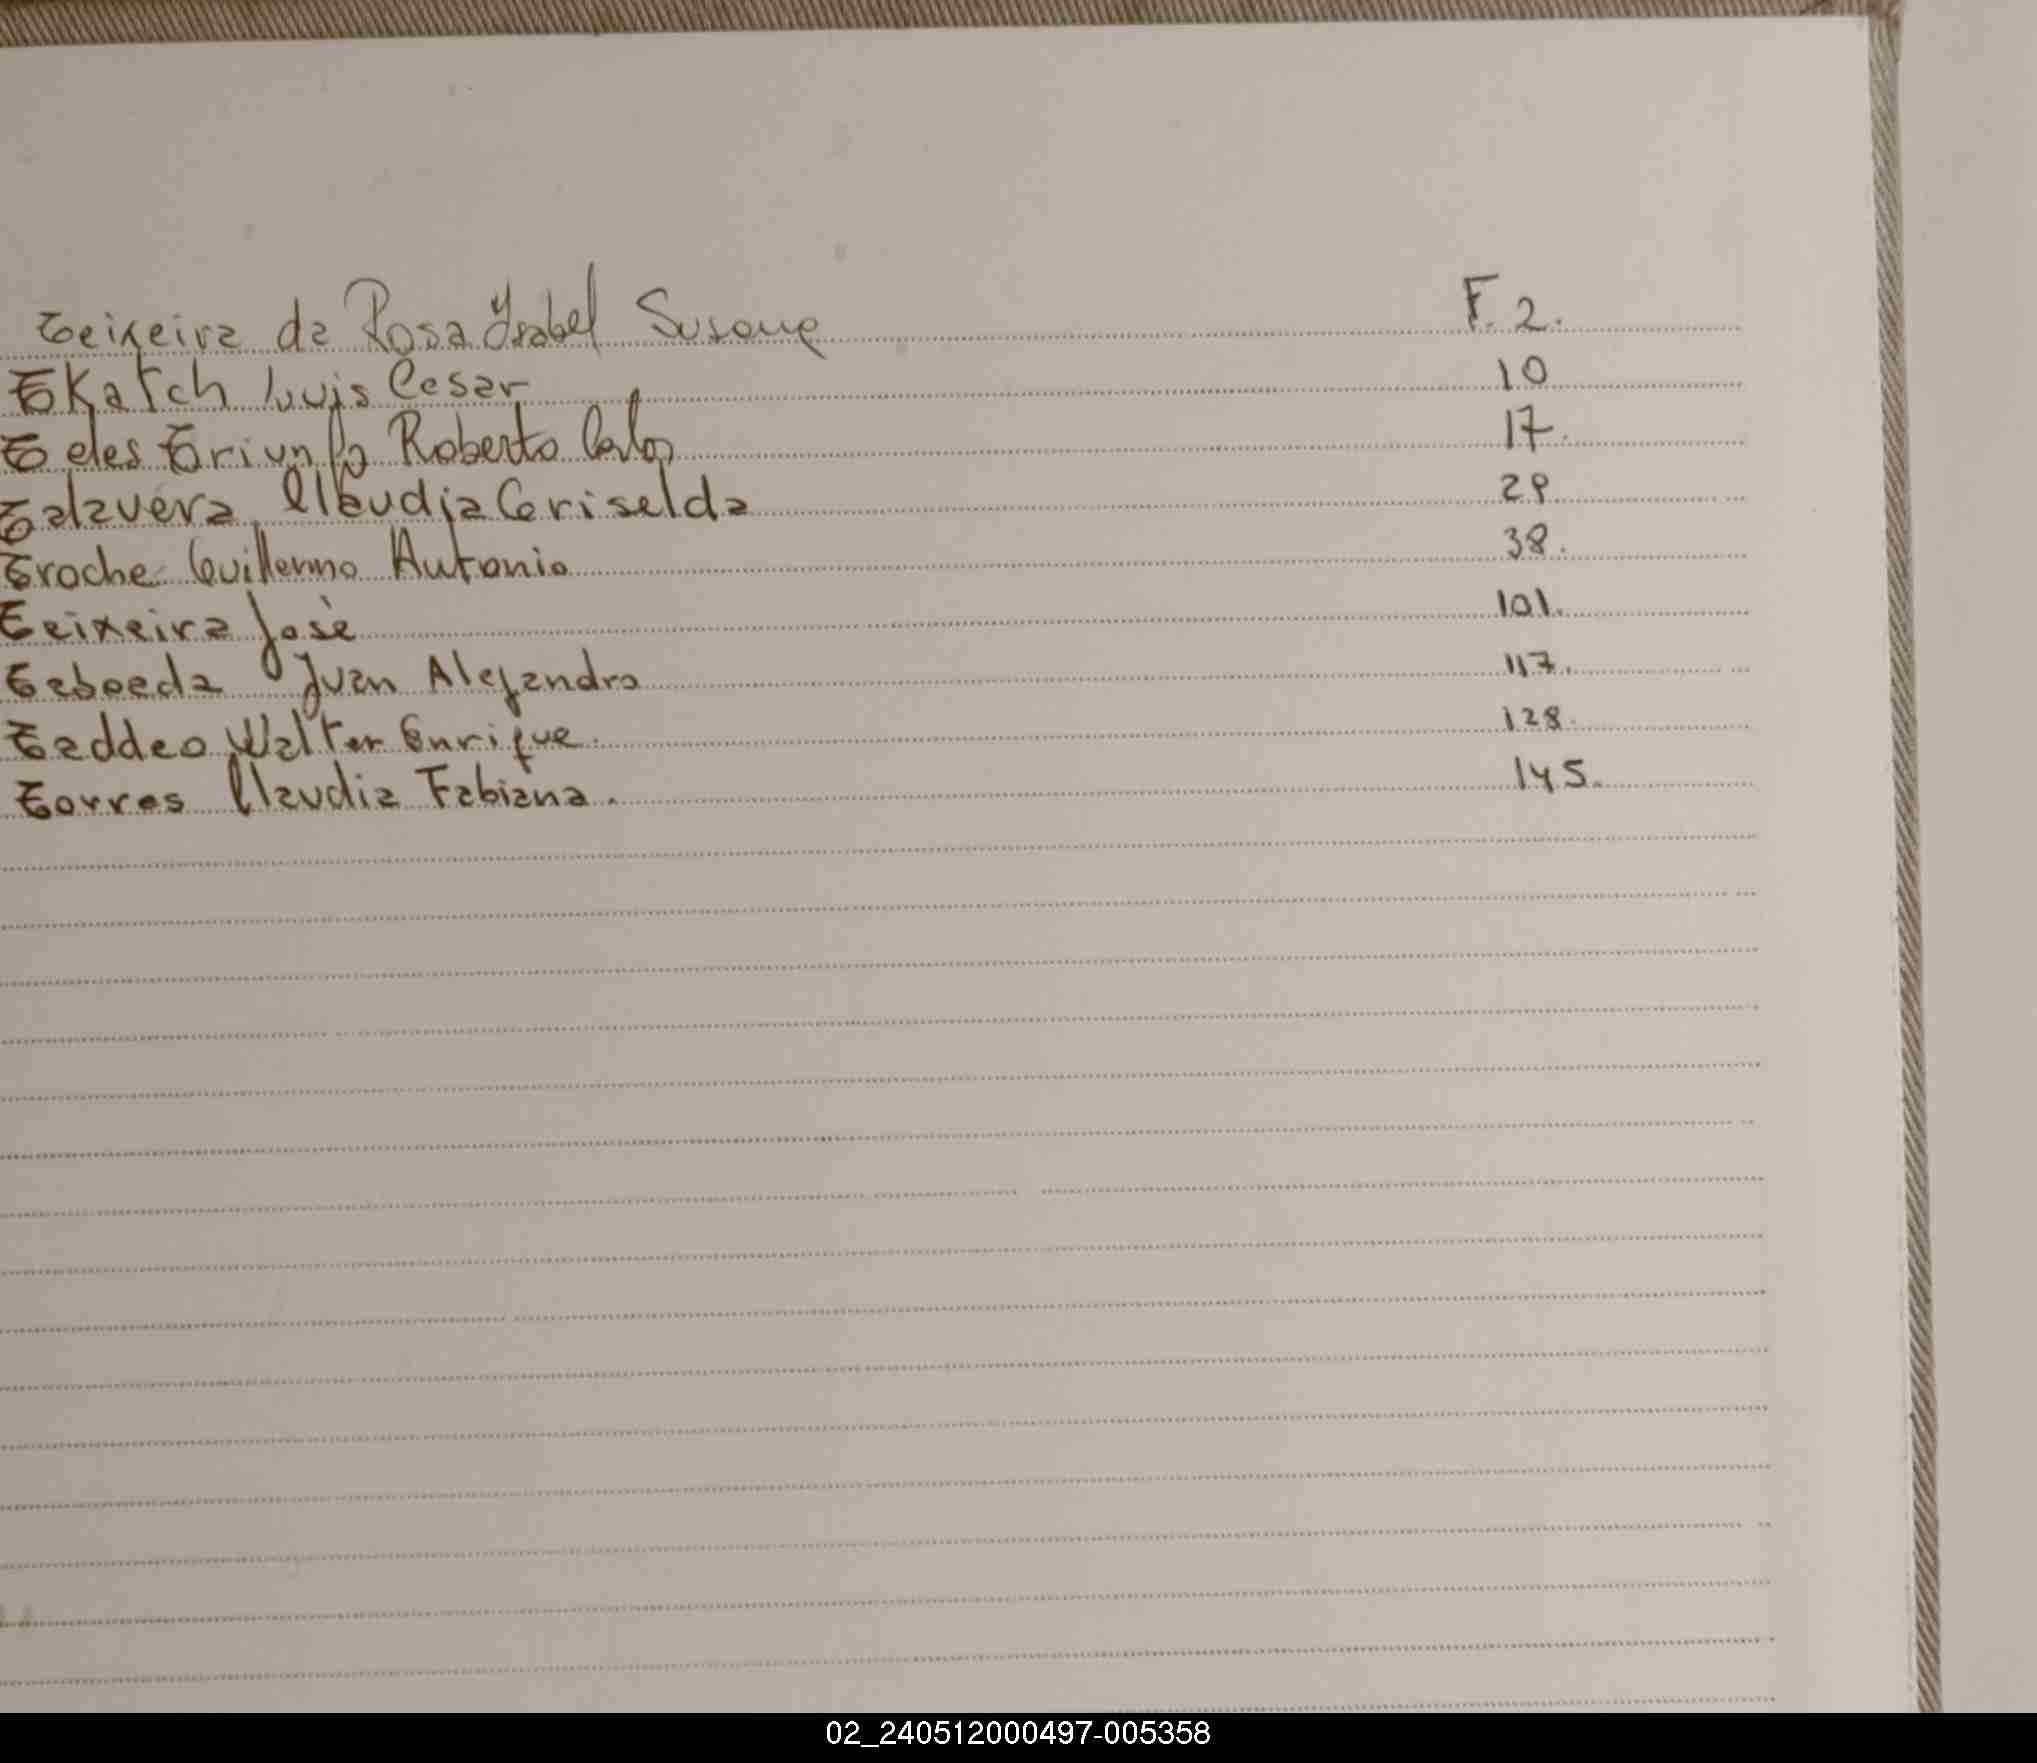 Teixeira da Rosa Ysabel Susana F. 2.
TKatch Luis Cesar 10
Teles Triunfo Roberto Carlos 17.
Talavera Claudia Griselda 29
Troche Guillermo Antonio 38.
Teixeira Josè 101.
Taboada Juan Alejandro 117.
Taddeo Walter Enrique. 128.
Torres Claudia Fabiana. 145.
02_240512000497-005358